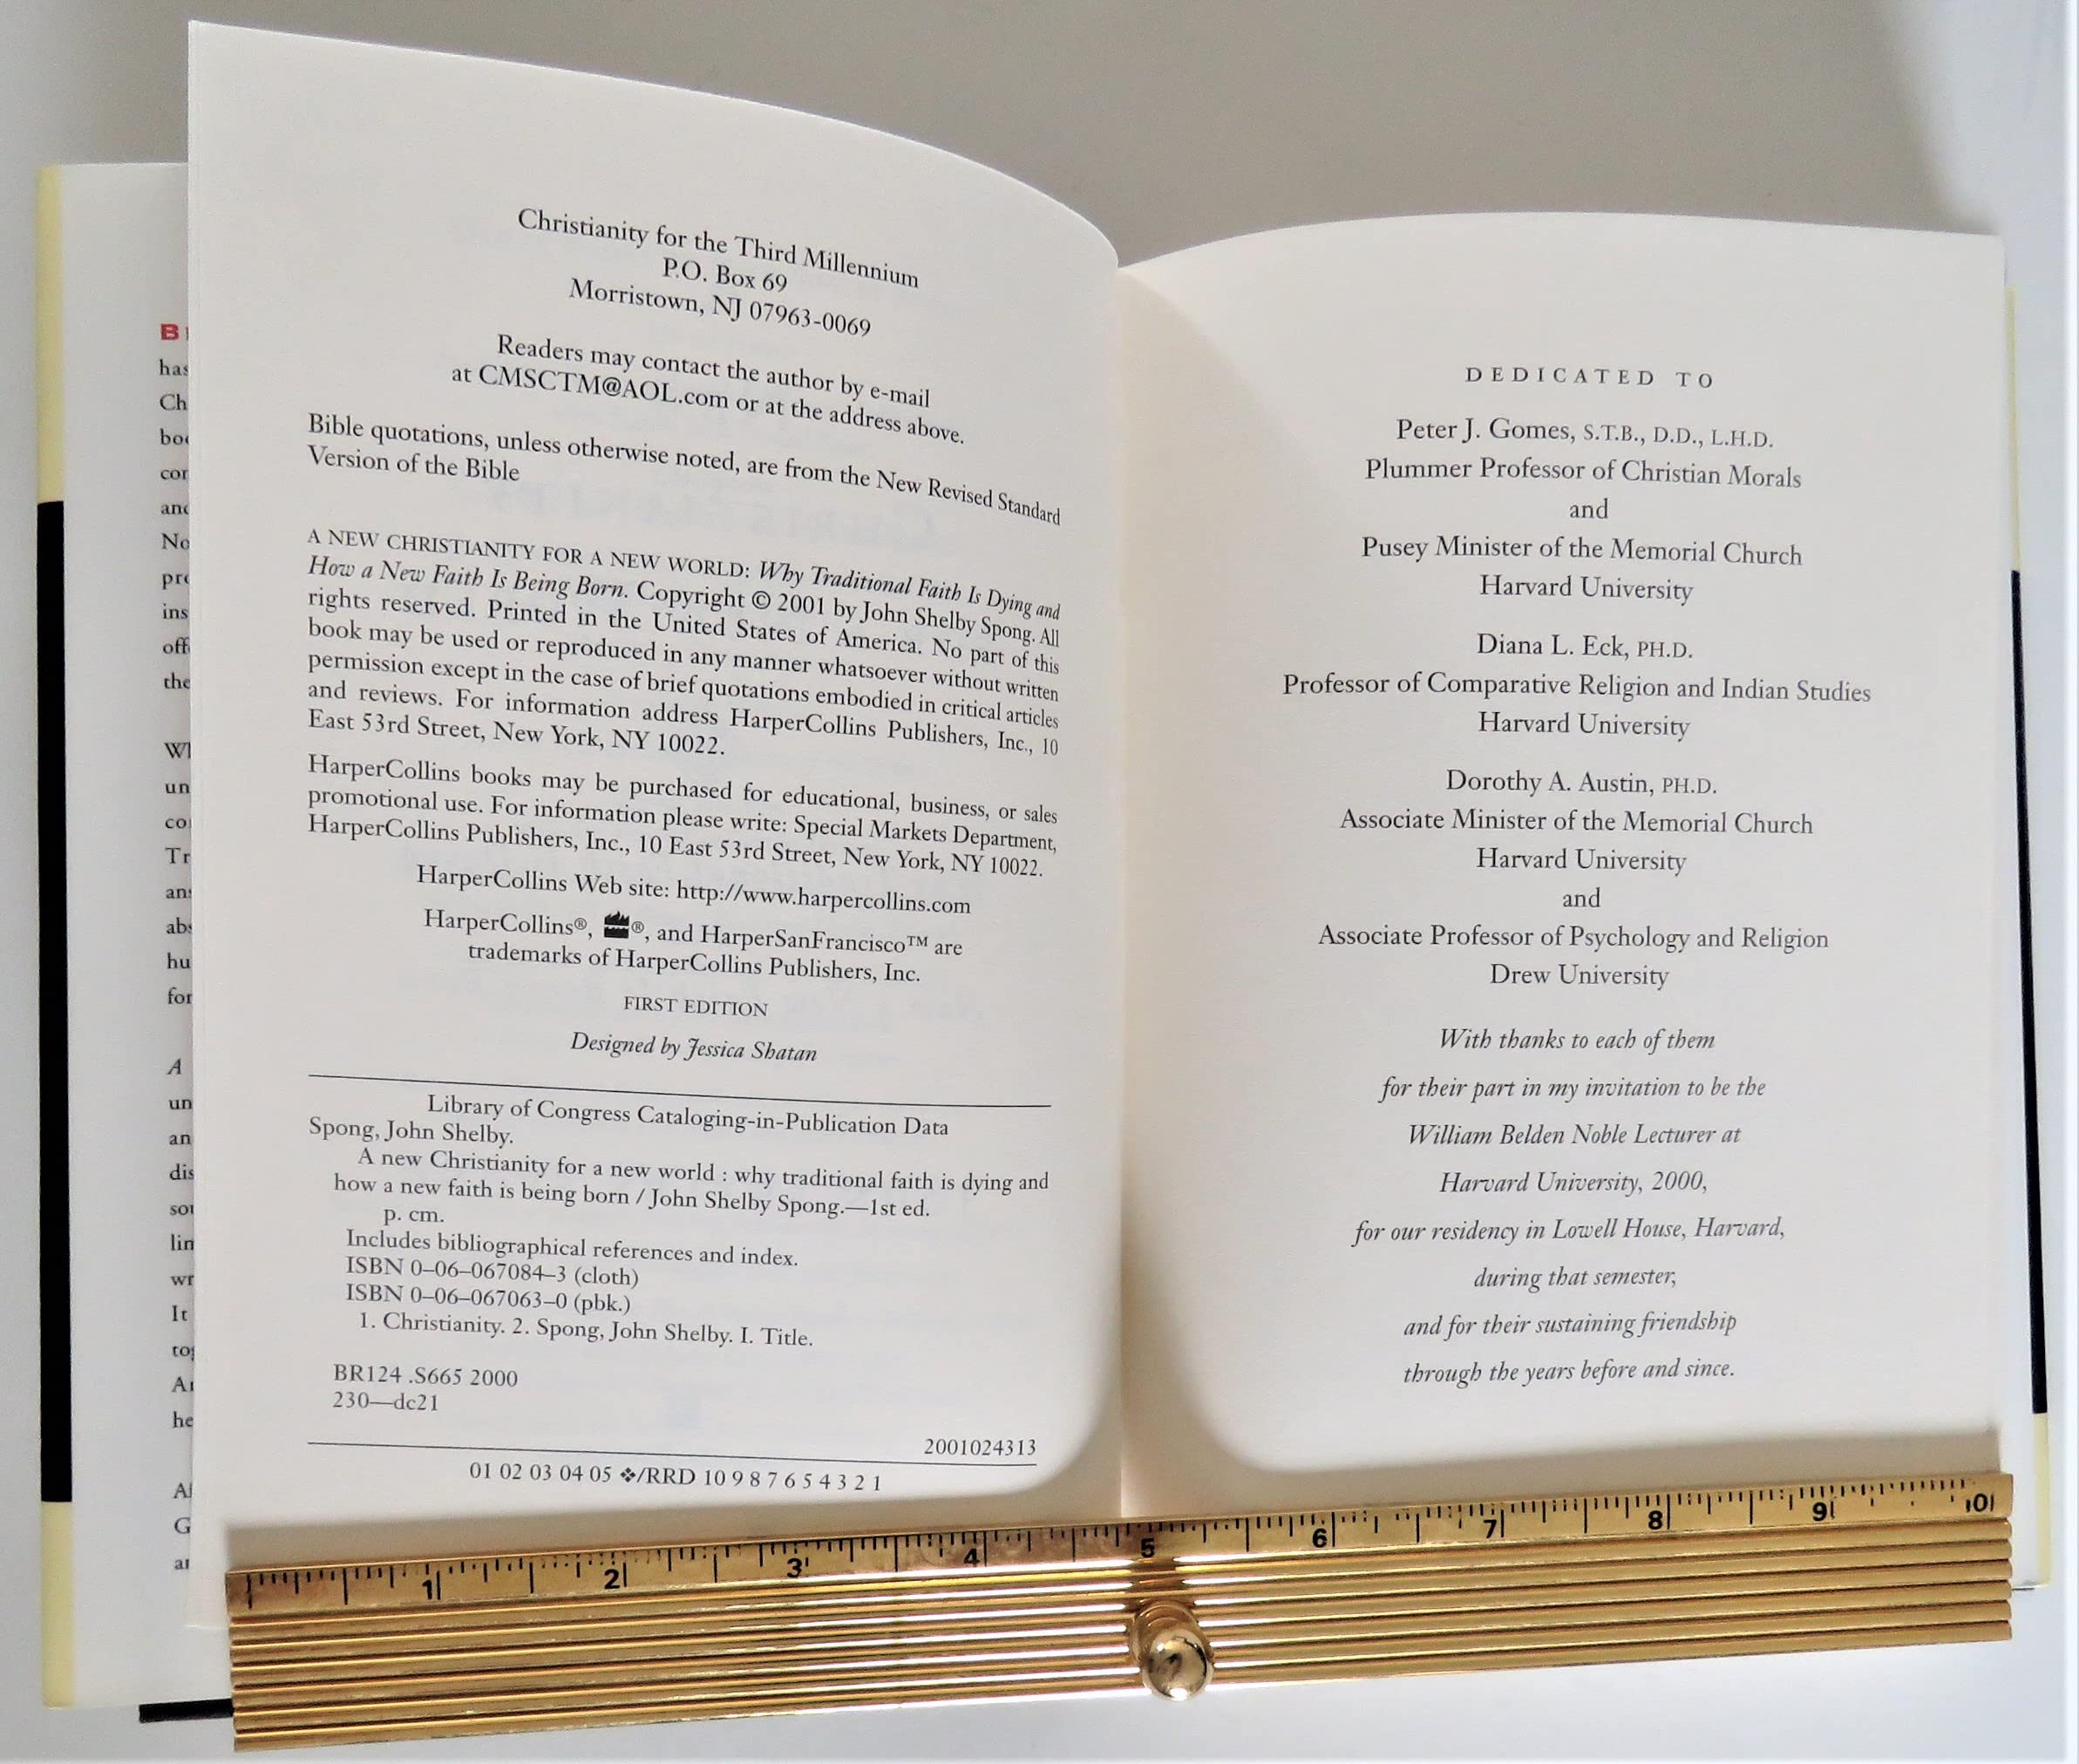 B
has
Ch
cor
and
No
ins
the
un
Tr
hu
for
A
un
an
dis
lin
It
he
G
Christianity for the Third Millennium
P.O. Box 69
Morristown, NJ 07963-0069
Readers may contact the author by e-mail
at CMSCTM@AOL.com or at the address above.
Bible quotations, unless otherwise noted, are from the New Revised Standard
Version of the Bible
A NEW CHRISTIANITY FOR A NEW WORLD: Why Traditional Faith Is Dying and
How a New Faith Is Being Born. Copyright © 2001 by John Shelby Spong. All
rights reserved. Printed in the United States of America. No part of this
book may be used or reproduced in any manner whatsoever without written
permission except in the case of brief quotations embodied in critical articles
and reviews. For information address HarperCollins Publishers, Inc., 10
East 53rd Street, New York, NY 10022.
HarperCollins books may be purchased for educational, business, or sales
promotional use. For information please write: Special Markets Department,
HarperCollins Publishers, Inc., 10 East 53rd Street, New York, NY 10022.
HarperCollins Web site: http://www.harpercollins.com
HarperCollins®, ®, and HarperSanFrancisco™ are
trademarks of HarperCollins Publishers, Inc.
FIRST EDITION
Designed by Jessica Shatan
Library of Congress Cataloging-in-Publication Data
Spong, John Shelby.
A new Christianity for a new world : why traditional faith is dying and
how a new faith is being born / John Shelby Spong.—1st ed.
p. cm.
Includes bibliographical references and index.
ISBN 0–06–067084–3 (cloth)
ISBN 0–06–067063–0 (pbk.)
1. Christianity. 2. Spong, John Shelby. I. Title.
BR124 .S665 2000
230—dc21
2001024313
01 02 03 04 05 ❖/RRD 10 9 8 7 6 5 4 3 2 1
DEDICATED TO
Peter J. Gomes, S.T.B., D.D., L.H.D.
Plummer Professor of Christian Morals
and
Pusey Minister of the Memorial Church
Harvard University
Diana L. Eck, PH.D.
Professor of Comparative Religion and Indian Studies
Harvard University
Dorothy A. Austin, PH.D.
Associate Minister of the Memorial Church
Harvard University
and
Associate Professor of Psychology and Religion
Drew University
With thanks to each of them
for their part in my invitation to be the
William Belden Noble Lecturer at
Harvard University, 2000,
for our residency in Lowell House, Harvard,
during that semester,
and for their sustaining friendship
through the years before and since.
1 2 3 4 5 6 7 8 9 10